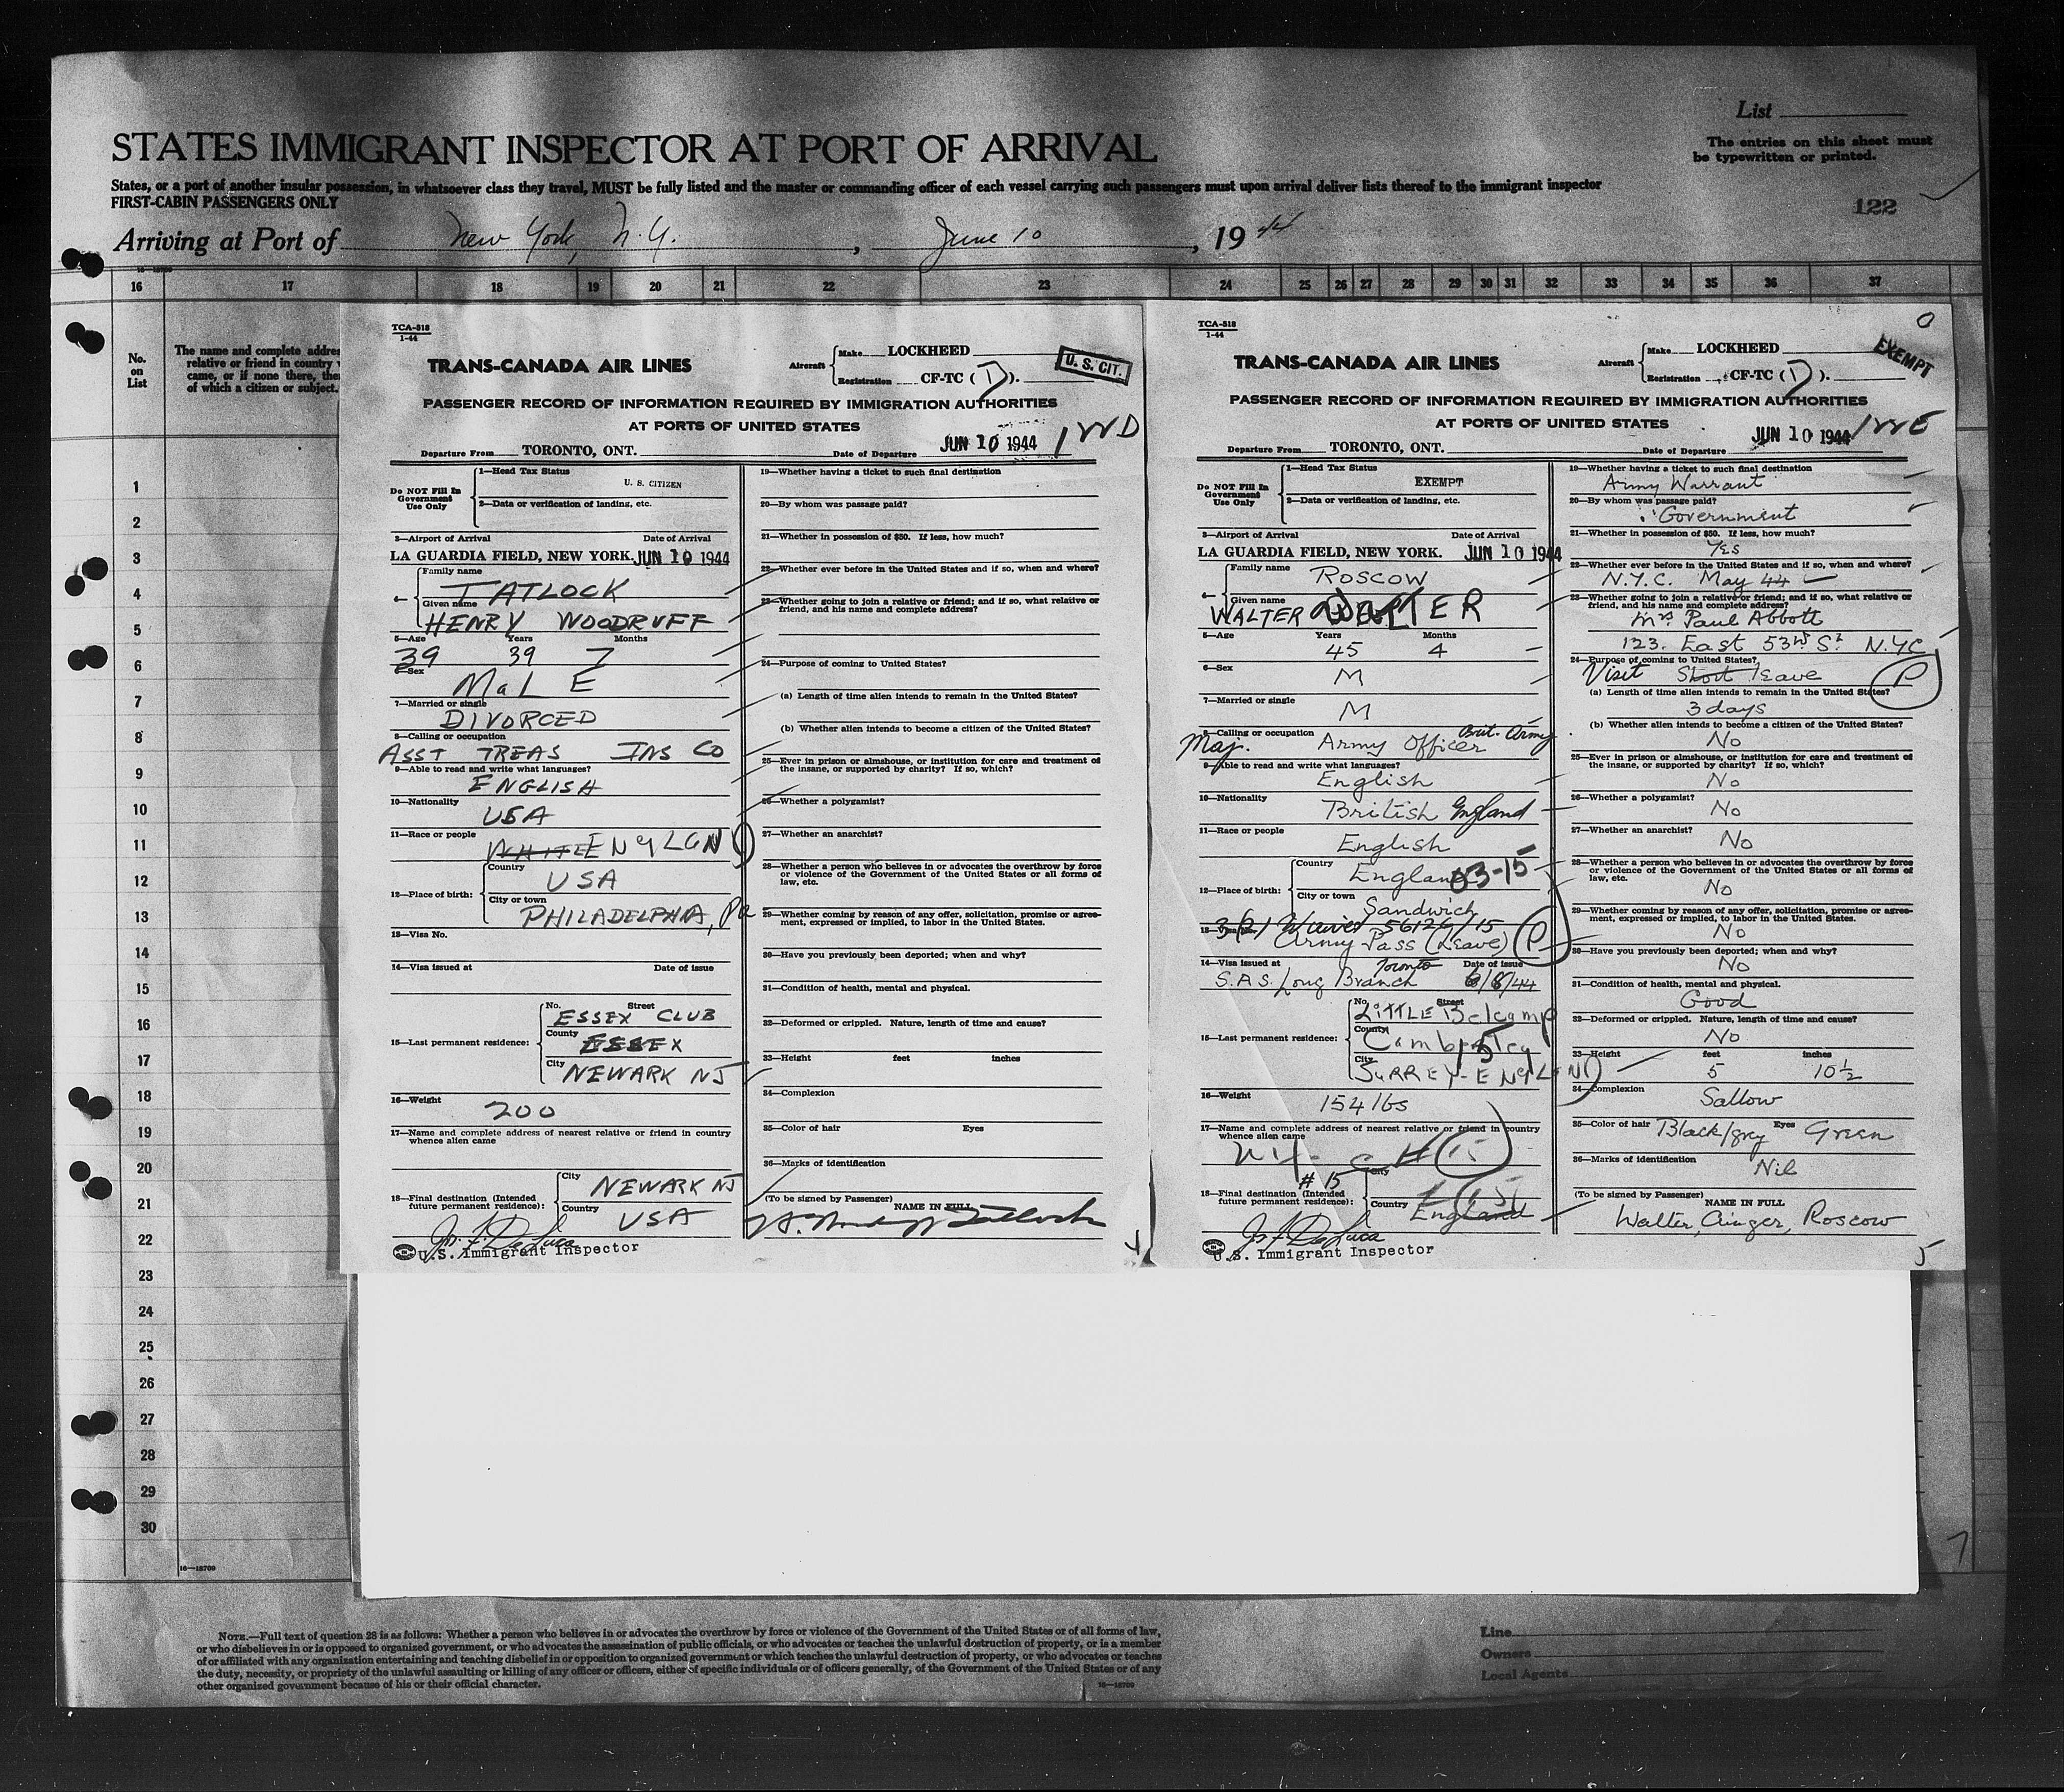 List
The entries on this sheet must
be typewritten or printed.
STATES IMMIGRANT INSPECTOR AT PORT OF ARRIVAL
States, or a port of another insular possession, in whatsoever class they travel, MUST be fully listed and the master or commanding officer of each vessel carrying such passengers must upon arrival deliver lists thereof to the immigrant inspector
FIRST-CABIN PASSENGERS ONLY
122
Arriving at Port of New York, N.Y., June 10, 1944
16 17 18 19 20 21 22 23 24 25 26 27 28 29 30 31 32 33 34 35 36 37
No.
on
List
The name and complete addre
relative or friend in country
came, or if none there, the
of which a citizen or subject.
1
2
3
4
5
6
7
8
9
10
11
12
13
14
15
16
17
18
19
20
21
22
23
24
25
26
27
28
29
30
16—18709
TCA-518
1-44
TRANS-CANADA AIR LINES
Aircraft Make LOCKHEED
Registration CF-TC (D).
U. S. CIT.
PASSENGER RECORD OF INFORMATION REQUIRED BY IMMIGRATION AUTHORITIES
AT PORTS OF UNITED STATES
Departure From TORONTO, ONT. Date of Departure JUN 10 1944
Do NOT Fill In
Government
Use Only
1—Head Tax Status
U. S. CITIZEN
2—Data or verification of landing, etc.
3—Airport of Arrival Date of Arrival
LA GUARDIA FIELD, NEW YORK. JUN 10 1944
4— Family name
TATLOCK
Given name
HENRY WOODRUFF
5—Age Years Months
39 39 7
6—Sex
MALE
7—Married or single
DIVORCED
8—Calling or occupation
ASST TREAS INS CO
9—Able to read and write what languages?
ENGLISH
10—Nationality
USA
11—Race or people
WHITE
12—Place of birth:
Country
USA
City or town
PHILADELPHIA, Pa
13—Visa No.
14—Visa issued at Date of issue
15—Last permanent residence:
No. Street
ESSEX CLUB
County
ESSEX
City
NEWARK NJ
16—Weight
200
17—Name and complete address of nearest relative or friend in country
whence alien came
18—Final destination (Intended
future permanent residence):
City
NEWARK NJ
Country
USA
U.S. Immigrant Inspector
19—Whether having a ticket to such final destination
20—By whom was passage paid?
21—Whether in possession of $50. If less, how much?
22—Whether ever before in the United States and if so, when and where?
23—Whether going to join a relative or friend; and if so, what relative or
friend, and his name and complete address?
24—Purpose of coming to United States?
(a) Length of time alien intends to remain in the United States?
(b) Whether alien intends to become a citizen of the United States?
25—Ever in prison or almshouse, or institution for care and treatment of
the insane, or supported by charity? If so, which?
26—Whether a polygamist?
27—Whether an anarchist?
28—Whether a person who believes in or advocates the overthrow by force
or violence of the Government of the United States or all forms of
law, etc.
29—Whether coming by reason of any offer, solicitation, promise or agree-
ment, expressed or implied, to labor in the United States.
30—Have you previously been deported; when and why?
31—Condition of health, mental and physical.
32—Deformed or crippled. Nature, length of time and cause?
33—Height feet inches
34—Complexion
35—Color of hair Eyes
36—Marks of identification
(To be signed by Passenger) NAME IN FULL
TCA-518
1-44
TRANS-CANADA AIR LINES
Aircraft Make LOCKHEED
Registration CF-TC (D).
EXEMPT
PASSENGER RECORD OF INFORMATION REQUIRED BY IMMIGRATION AUTHORITIES
AT PORTS OF UNITED STATES
Departure From TORONTO, ONT. Date of Departure JUN 10 1944
Do NOT Fill In
Government
Use Only
1—Head Tax Status
EXEMPT
2—Data or verification of landing, etc.
3—Airport of Arrival Date of Arrival
LA GUARDIA FIELD, NEW YORK. JUN 10 1944
4— Family name
ROSCOW
Given name
WALTER WALTER
5—Age Years Months
45 4
6—Sex
M
7—Married or single
M
8—Calling or occupation
Maj. Army Officer Brit. Army
9—Able to read and write what languages?
English
10—Nationality
British England
11—Race or people
English
12—Place of birth:
Country
England 03-15
City or town
Sandwich
3(2) Waiver 56126/15
Army Pass (Leave) P
14—Visa issued at Date of issue
S.A.S. Long Branch Toronto 6/8/44
15—Last permanent residence:
No. Street
County
City
SURREY-
16—Weight
154 lbs
17—Name and complete address of nearest relative or friend in country
whence alien came
# 15
18—Final destination (Intended
future permanent residence):
City
Country
England
U.S. Immigrant Inspector
19—Whether having a ticket to such final destination
Army Warrant
20—By whom was passage paid?
Government
21—Whether in possession of $50. If less, how much?
Yes
22—Whether ever before in the United States and if so, when and where?
N.Y.C. May 44
23—Whether going to join a relative or friend; and if so, what relative or
friend, and his name and complete address?
Mrs Paul Abbott
123. East 53rd St. N.Y.C
24—Purpose of coming to United States?
Visit Short leave P
(a) Length of time alien intends to remain in the United States?
3 days
(b) Whether alien intends to become a citizen of the United States?
No
25—Ever in prison or almshouse, or institution for care and treatment of
the insane, or supported by charity? If so, which?
No
26—Whether a polygamist?
No
27—Whether an anarchist?
No
28—Whether a person who believes in or advocates the overthrow by force
or violence of the Government of the United States or all forms of
law, etc.
No
29—Whether coming by reason of any offer, solicitation, promise or agree-
ment, expressed or implied, to labor in the United States.
No
30—Have you previously been deported; when and why?
No
31—Condition of health, mental and physical.
Good
32—Deformed or crippled. Nature, length of time and cause?
No
33—Height feet inches
5 10½
34—Complexion
Sallow
35—Color of hair Black/grey Eyes Green
36—Marks of identification
Nil
(To be signed by Passenger)
NAME IN FULL
Walter, Roscow
NOTE.—Full text of question 28 is as follows: Whether a person who believes in or advocates the overthrow by force or violence of the Government of the United States or of all forms of law,
or who disbelieves in or is opposed to organized government, or who advocates the assassination of public officials, or who advocates or teaches the unlawful destruction of property, or is a member
of or affiliated with any organization entertaining and teaching disbelief in or opposition to organized government or which teaches the unlawful destruction of property, or who advocates or teaches
the duty, necessity, or propriety of the unlawful assaulting or killing of any officer or officers, either of specific individuals or of officers generally, of the Government of the United States or of any
other organized government because of his or their official character.
16—18709
Line
Owners
Local Agents